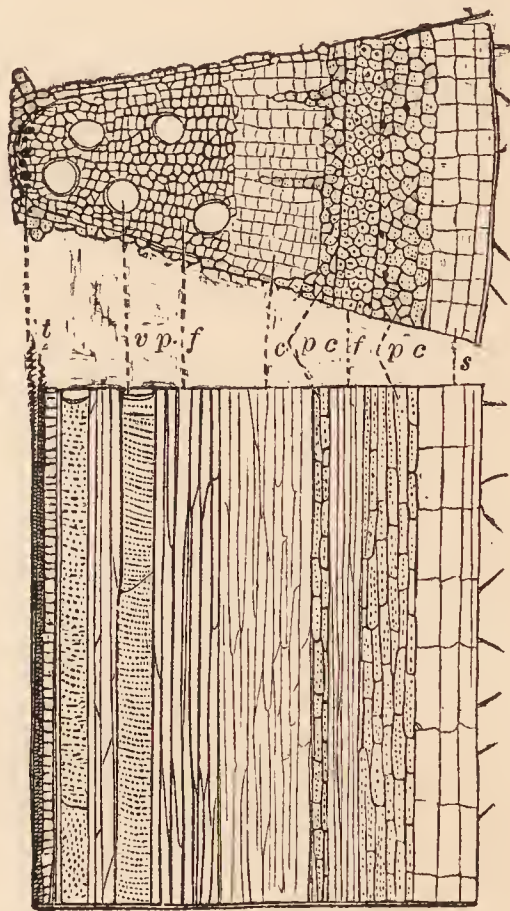 t v p f c p c f p c s